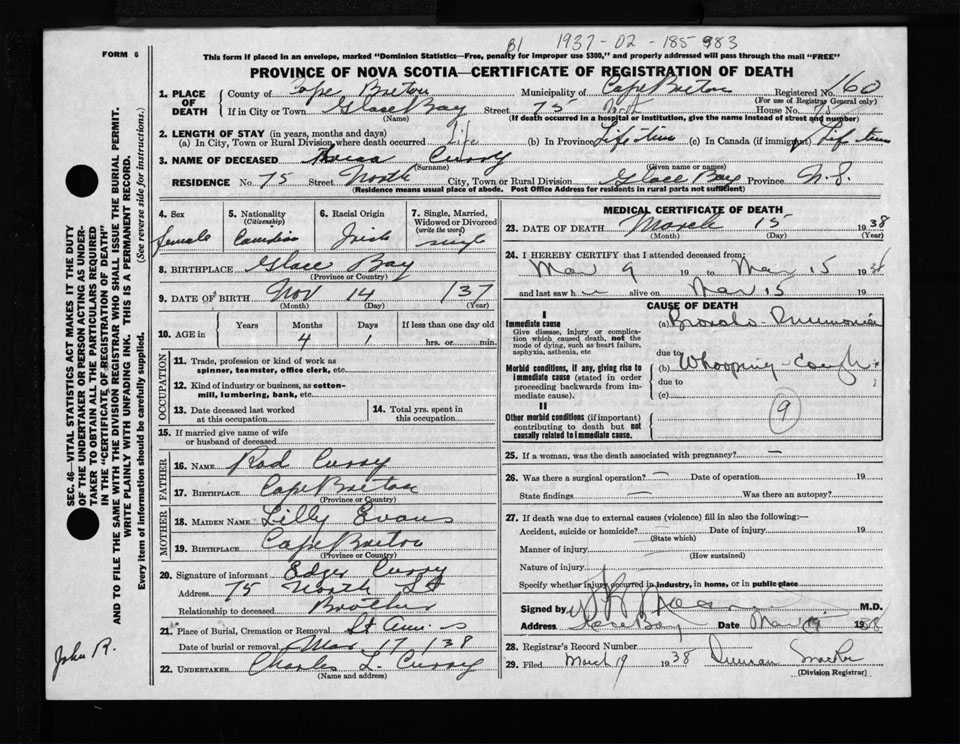 FORM 6
B1 1937-02-185983
This form if placed in an envelope, marked "Dominion Statistics—Free, penalty for improper use $300," and properly addressed will pass through the mail "FREE"
PROVINCE OF NOVA SCOTIA—CERTIFICATE OF REGISTRATION OF DEATH
1. PLACE OF DEATH County of Cape Breton Municipality of Cape Breton Registered No. 160
(For use of Registrar General only)
If in City or Town Glace Bay Street 75 North House No. 75
(Name) (If death occurred in a hospital or institution, give the name instead of street and number)
2. LENGTH OF STAY (in years, months and days)
(a) In City, Town or Rural Division where death occurred Life (b) In Province Life time (c) In Canada (if immigrant) Life time
3. NAME OF DECEASED Curry
(Surname) (Given name or names)
RESIDENCE No. 75 Street North City, Town or Rural Division Glace Bay Province N.S.
(Residence means usual place of abode. Post Office Address for residents in rural parts not sufficient)
4. Sex 5. Nationality 6. Racial Origin 7. Single, Married,
(Citizenship) Widowed or Divorced
(write the word)
female Canadian Irish single
8. BIRTHPLACE Glace Bay
(Province or Country)
9. DATE OF BIRTH Nov 14 /37
(Month) (Day) (Year)
10. AGE in Years Months Days If less than one day old
4 1 hrs. or min.
OCCUPATION
11. Trade, profession or kind of work as
spinner, teamster, office clerk, etc.
12. Kind of industry or business, as cotton-
mill, lumbering, bank, etc.
13. Date deceased last worked
at this occupation
14. Total yrs. spent in
this occupation
15. If married give name of wife
or husband of deceased
FATHER
16. NAME Rod Curry
17. BIRTHPLACE Cape Breton
(Province or Country)
MOTHER
18. MAIDEN NAME Lilly Evans
19. BIRTHPLACE Cape Breton
(Province or Country)
20. Signature of informant Edger Curry
Address 75 North St
Relationship to deceased Brother
21. Place of Burial, Cremation or Removal St Ann's
Date of burial or removal Mar 17 /38
22. UNDERTAKER Charles L. Curry
(Name and address)
MEDICAL CERTIFICATE OF DEATH
23. DATE OF DEATH March 15 1938
(Month) (Day) (Year)
24. I HEREBY CERTIFY that I attended deceased from:
Mar 9 19 to Mar 15 1938
and last saw h alive on Mar 15 19
CAUSE OF DEATH
I
Immediate cause (a) Broncho-Pneumonia
Give disease, injury or complica-
tion which caused death, not the
mode of dying, such as heart failure,
asphyxia, asthenia, etc
due to
Morbid conditions, if any, giving rise to
immediate cause (stated in order
proceeding backwards from im-
mediate cause).
(b) Whooping-Cough
due to
(c)
II
Other morbid conditions (if important)
contributing to death but not
causally related to immediate cause.
9
25. If a woman, was the death associated with pregnancy? —
26. Was there a surgical operation? — Date of operation 19
State findings — Was there an autopsy?
27. If death was due to external causes (violence) fill in also the following:—
Accident, suicide or homicide? Date of injury 19
(State which)
Manner of injury
(How sustained)
Nature of injury
Specify whether injury occurred in industry, in home, or in public place
Signed by M.D.
Address Glace Bay Date Mar 19 1938
28. Registrar's Record Number
29. Filed March 19 1938 Duncan
(Division Registrar)
SEC. 46—VITAL STATISTICS ACT MAKES IT THE DUTY
OF THE UNDERTAKER OR PERSON ACTING AS UNDER-
TAKER TO OBTAIN ALL THE PARTICULARS REQUIRED
IN THE "CERTIFICATE OF REGISTRATION OF DEATH"
AND TO FILE THE SAME WITH THE DIVISION REGISTRAR WHO SHALL ISSUE THE BURIAL PERMIT.
WRITE PLAINLY WITH UNFADING INK. THIS IS A PERMANENT RECORD.
Every item of information should be carefully supplied. (See reverse side for instructions.)
John R.